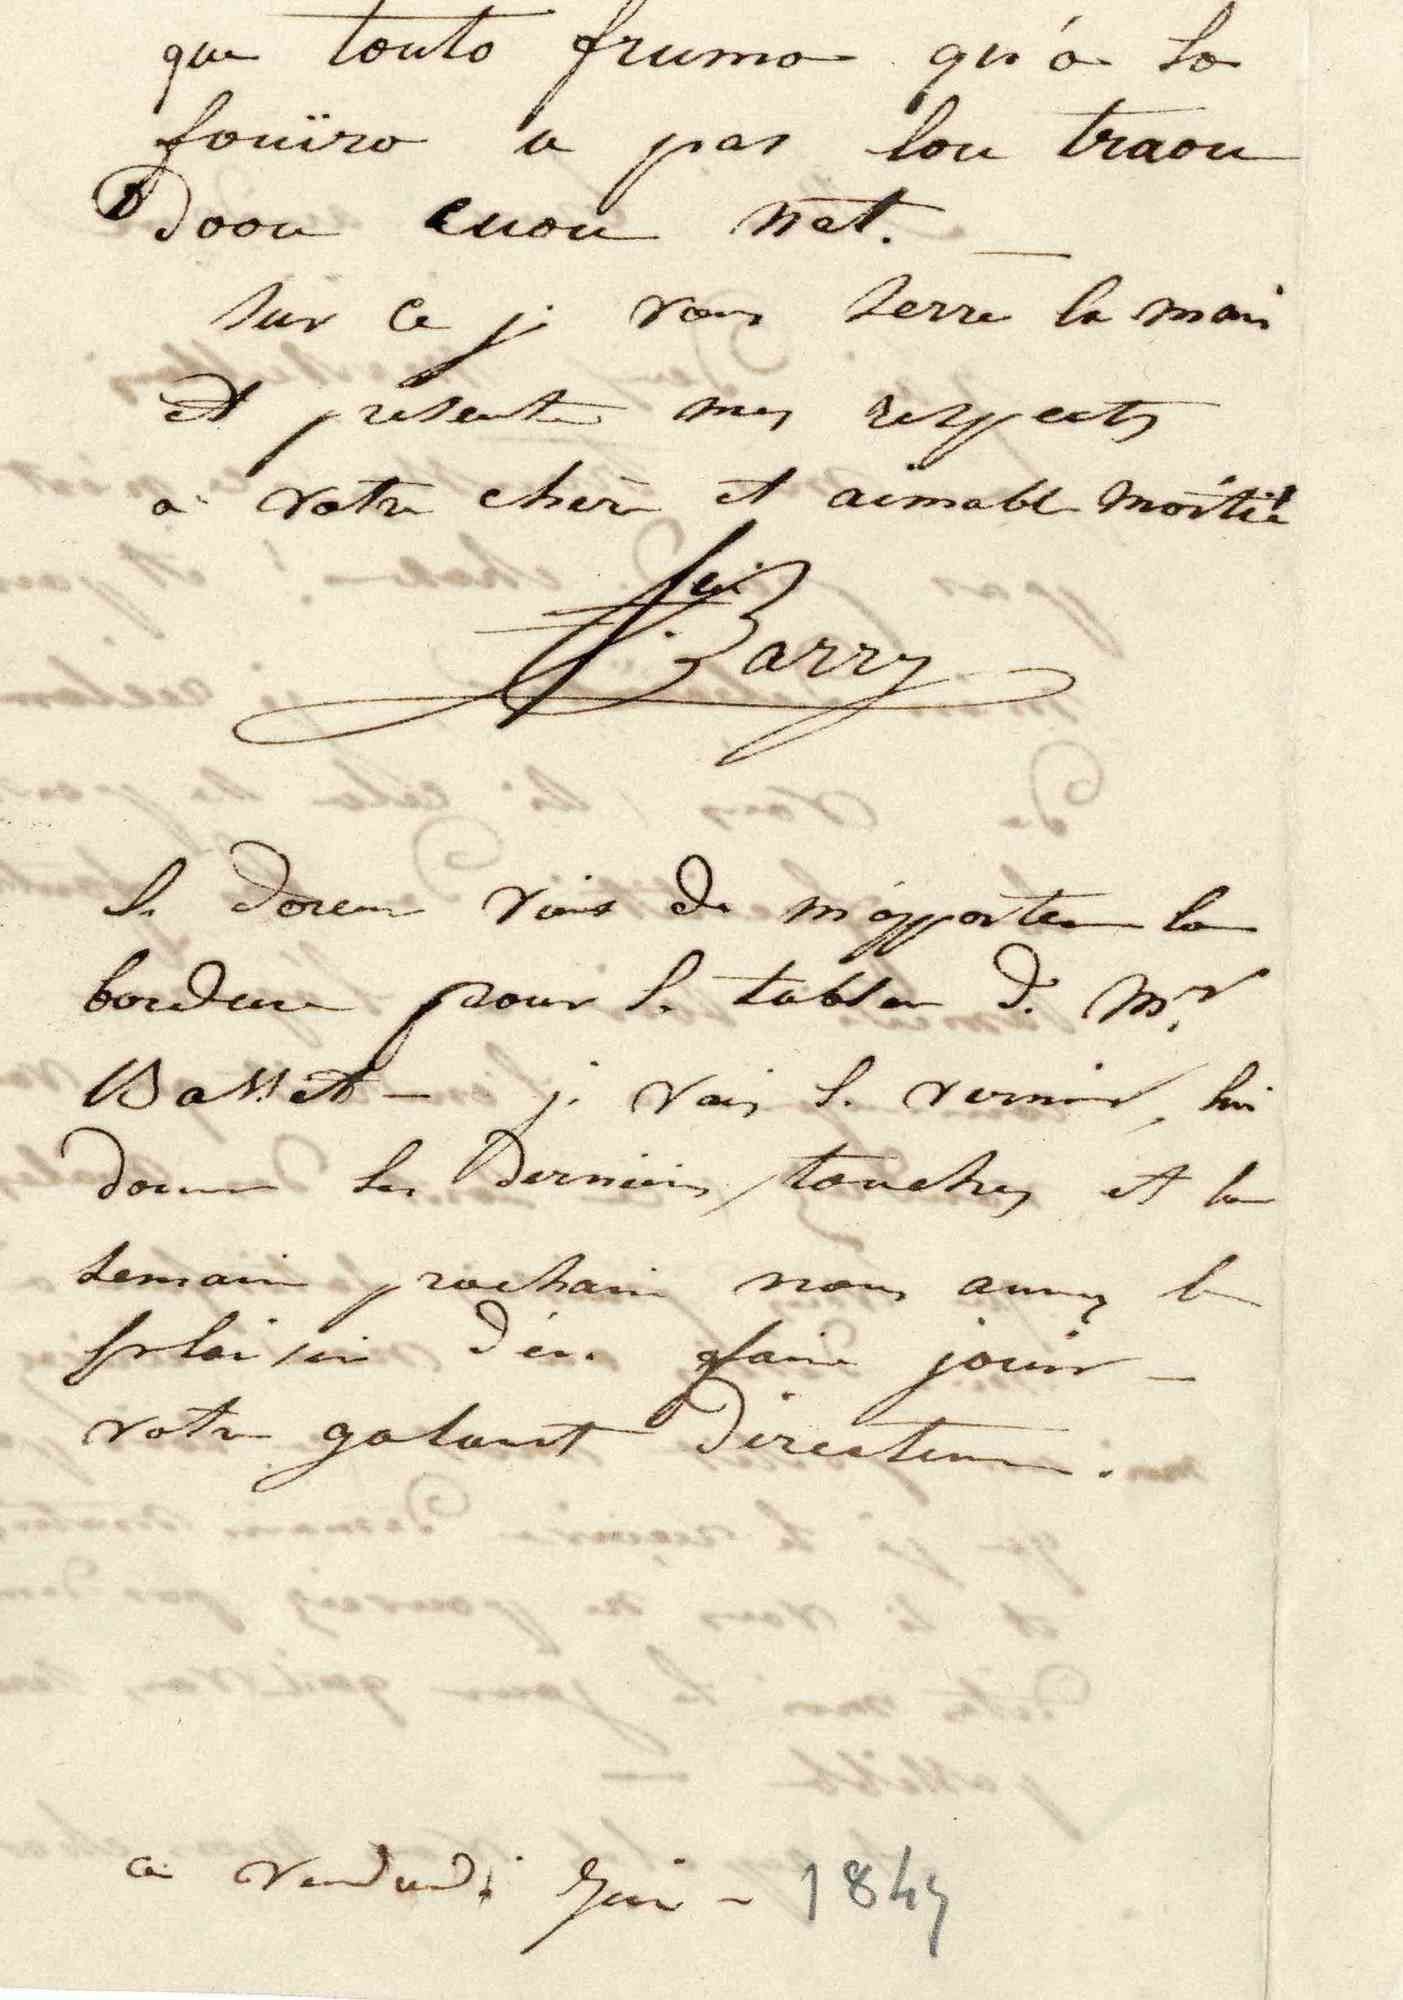 que touto frumo qu'a la
fouïro a pas lou traou
Doou cuou net. —
sur ce je vous serre la main
et presente mes respects
a votre chère et aimable moitié
F. Barry
le doreur viens de m'apporter la
bordure pour le tableau de Mr
Basset — je vais le vernir, lui
donner les derniers touches et la
semaine prochaine nous aurez le
plaisir d'en faire jouir —
votre galant Directeur.
ce vendredi Juin - 1847